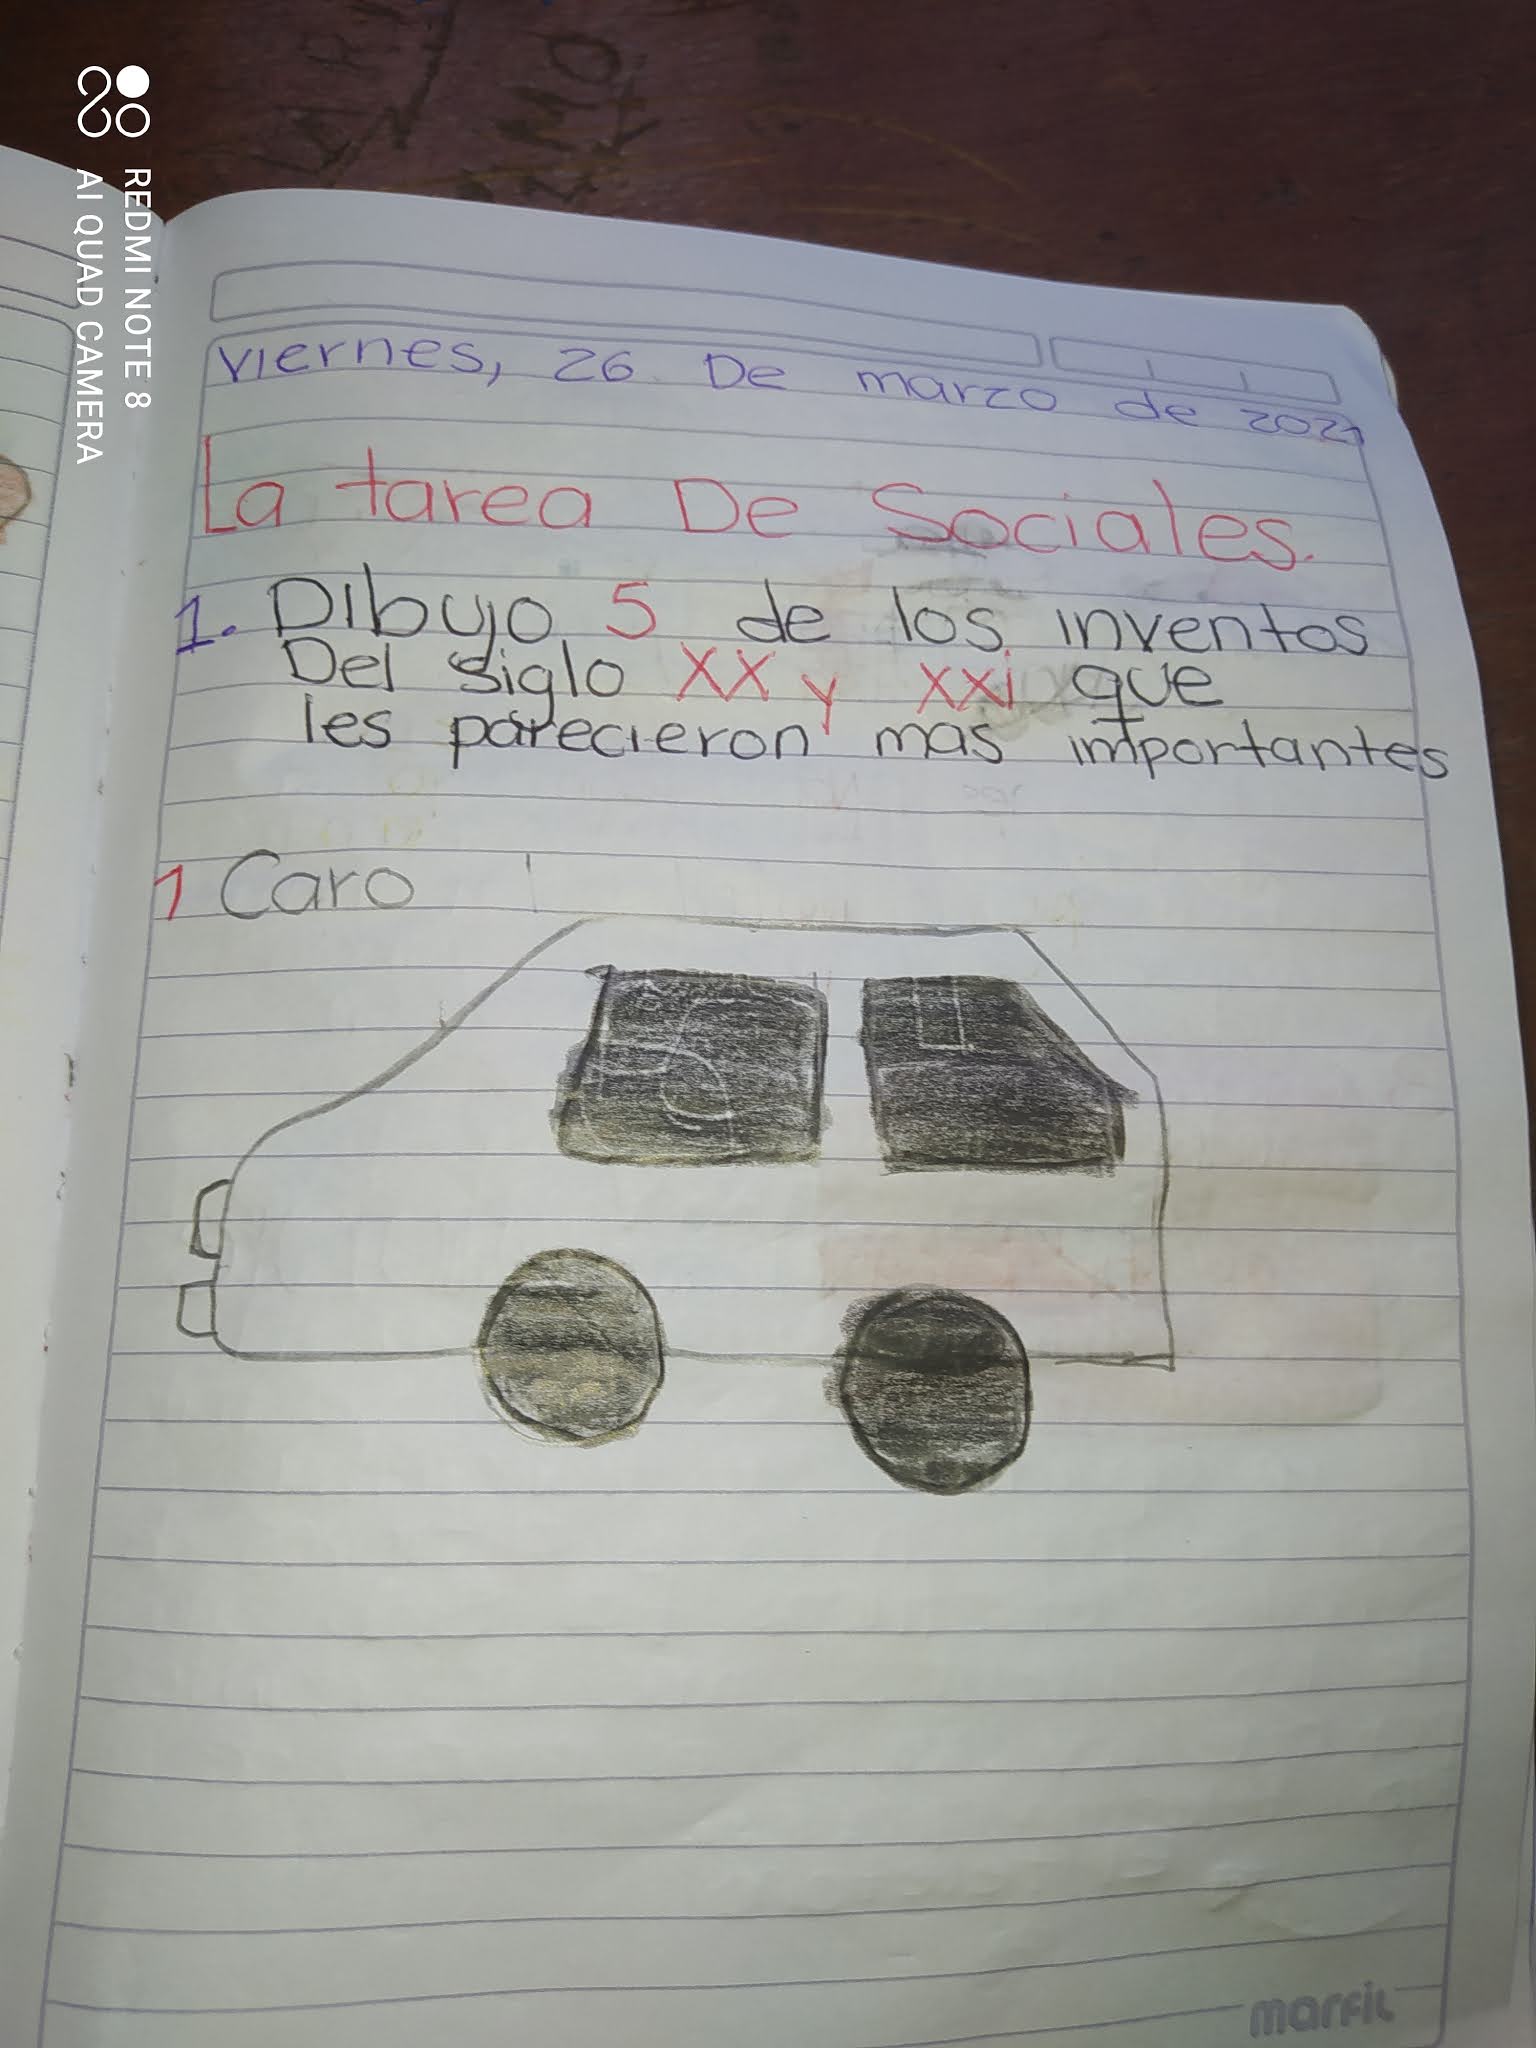 REDMI NOTE 8
AI QUAD CAMERA
viernes, 26 De marzo de 2021
La tarea De Sociales.
1. Dibujo 5 de los inventos
Del siglo XX y XXi que
les parecieron mas importantes
1 Caro
marfil